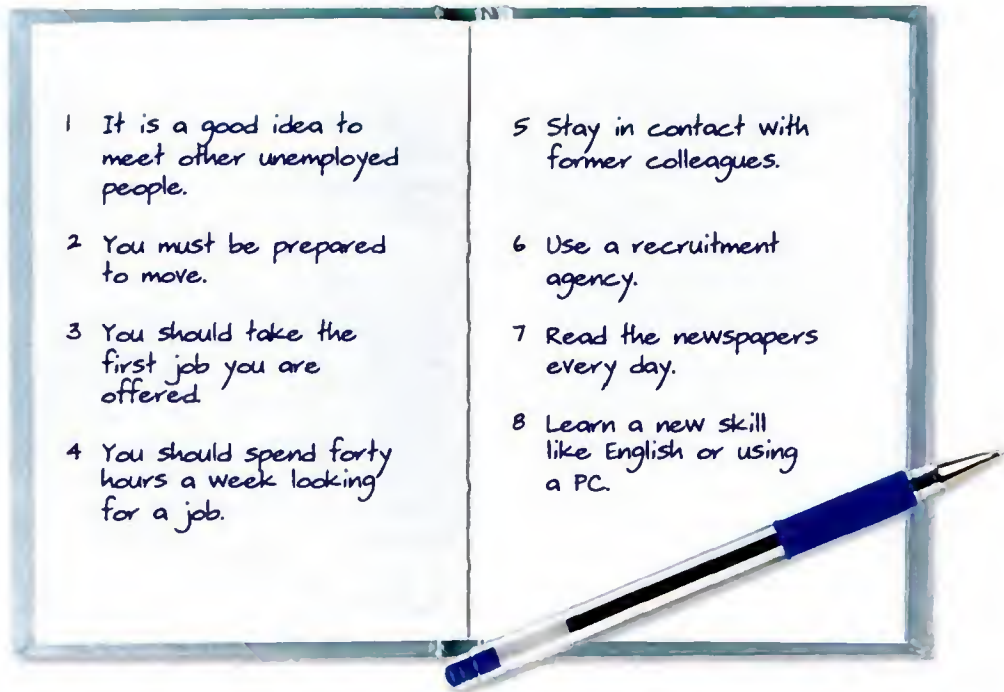 1 It is a good idea to
meet other unemployed
people.
2 You must be prepared
to move.
3 You should take the
first job you are
offered
4 You should spend forty
hours a week looking
for a job.
5 Stay in contact with
former colleagues.
6 Use a recruitment
agency.
7 Read the newspapers
every day.
8 Learn a new skill
like English or using
a PC.